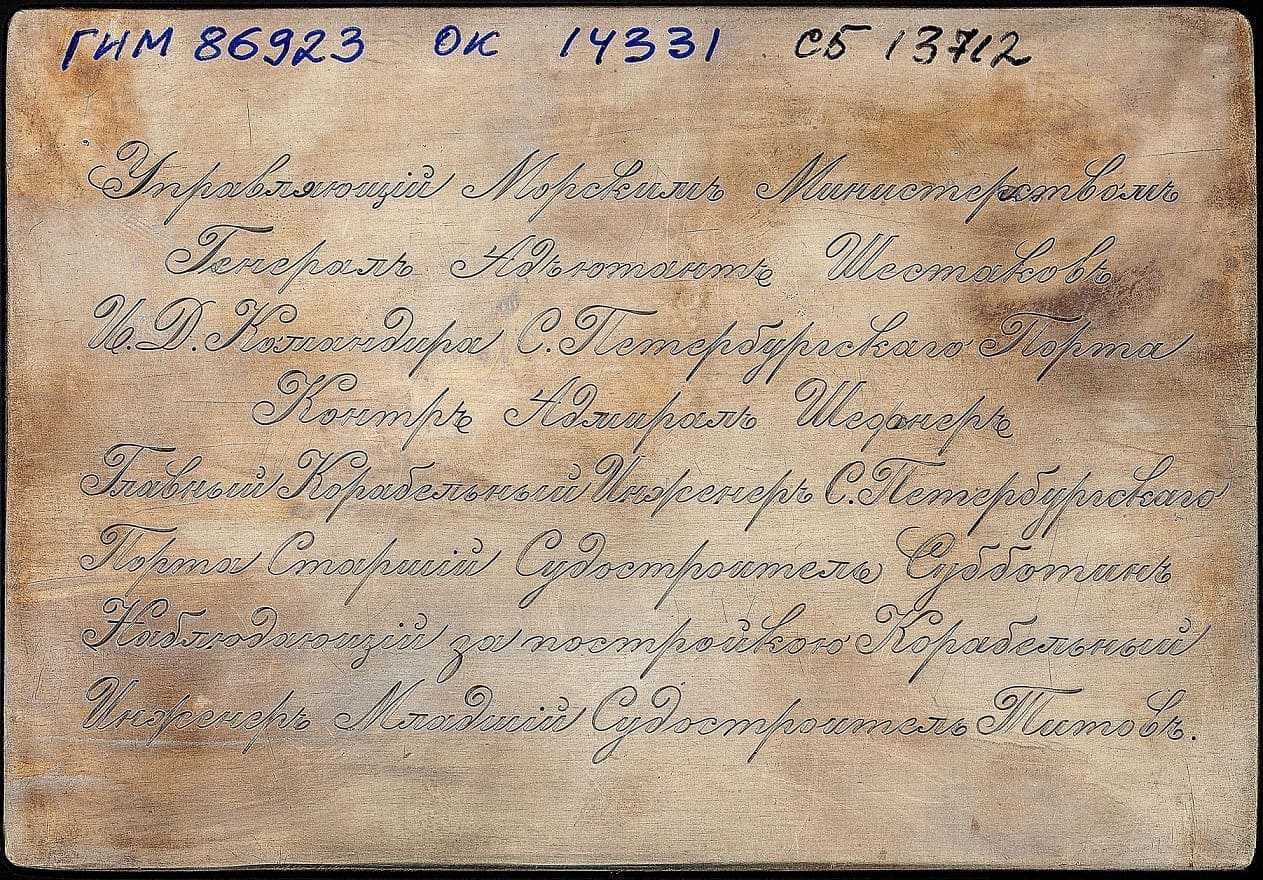 ГИМ 86923 ОК 14331 СБ 13712
Управляющій Морскимъ Министерствомъ
Генералъ Адъютантъ Шестаковъ
И.Д. Командира С. Петербургскаго Порта
Контръ Адмиралъ Шефнеръ
Главный Корабельный Инженеръ С. Петербургскаго
Порта Старшій Судостроитель Субботинъ
Наблюдающій за постройкою Корабельный
Инженеръ Младшій Судостроитель Титовъ.